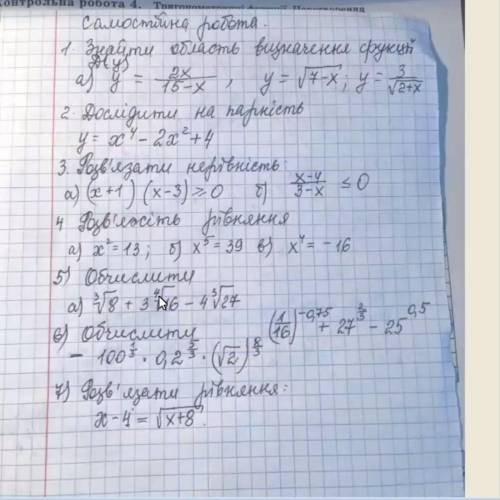 контрольна робота 4.
Самостійна робота.
1. Знайти область визначення функції
D(y)
а) y = 2x/(15-x), y = √(7-x); y = 3/√(2+x)
2. Дослідити на парність
y = x⁴ - 2x² + 4
3. Розв'язати нерівність:
а) (x+1)(x-3) ≥ 0 б) (x-4)/(3-x) ≤ 0
4 Розв'яжіть рівняння
а) x² = 13; б) x⁵ = 39 в) x⁴ = -16
5) Обчислити
а) ∛8 + 3∜16 - 4∛27
6) Обчислити (1/16)^(-0,75) + 27^(2/3) - 25^(0,5)
- 100^(1/3) · 0,2^(5/3) · (√2)^(8/3)
7) Розв'язати рівняння:
x - 4 = √(x+8).